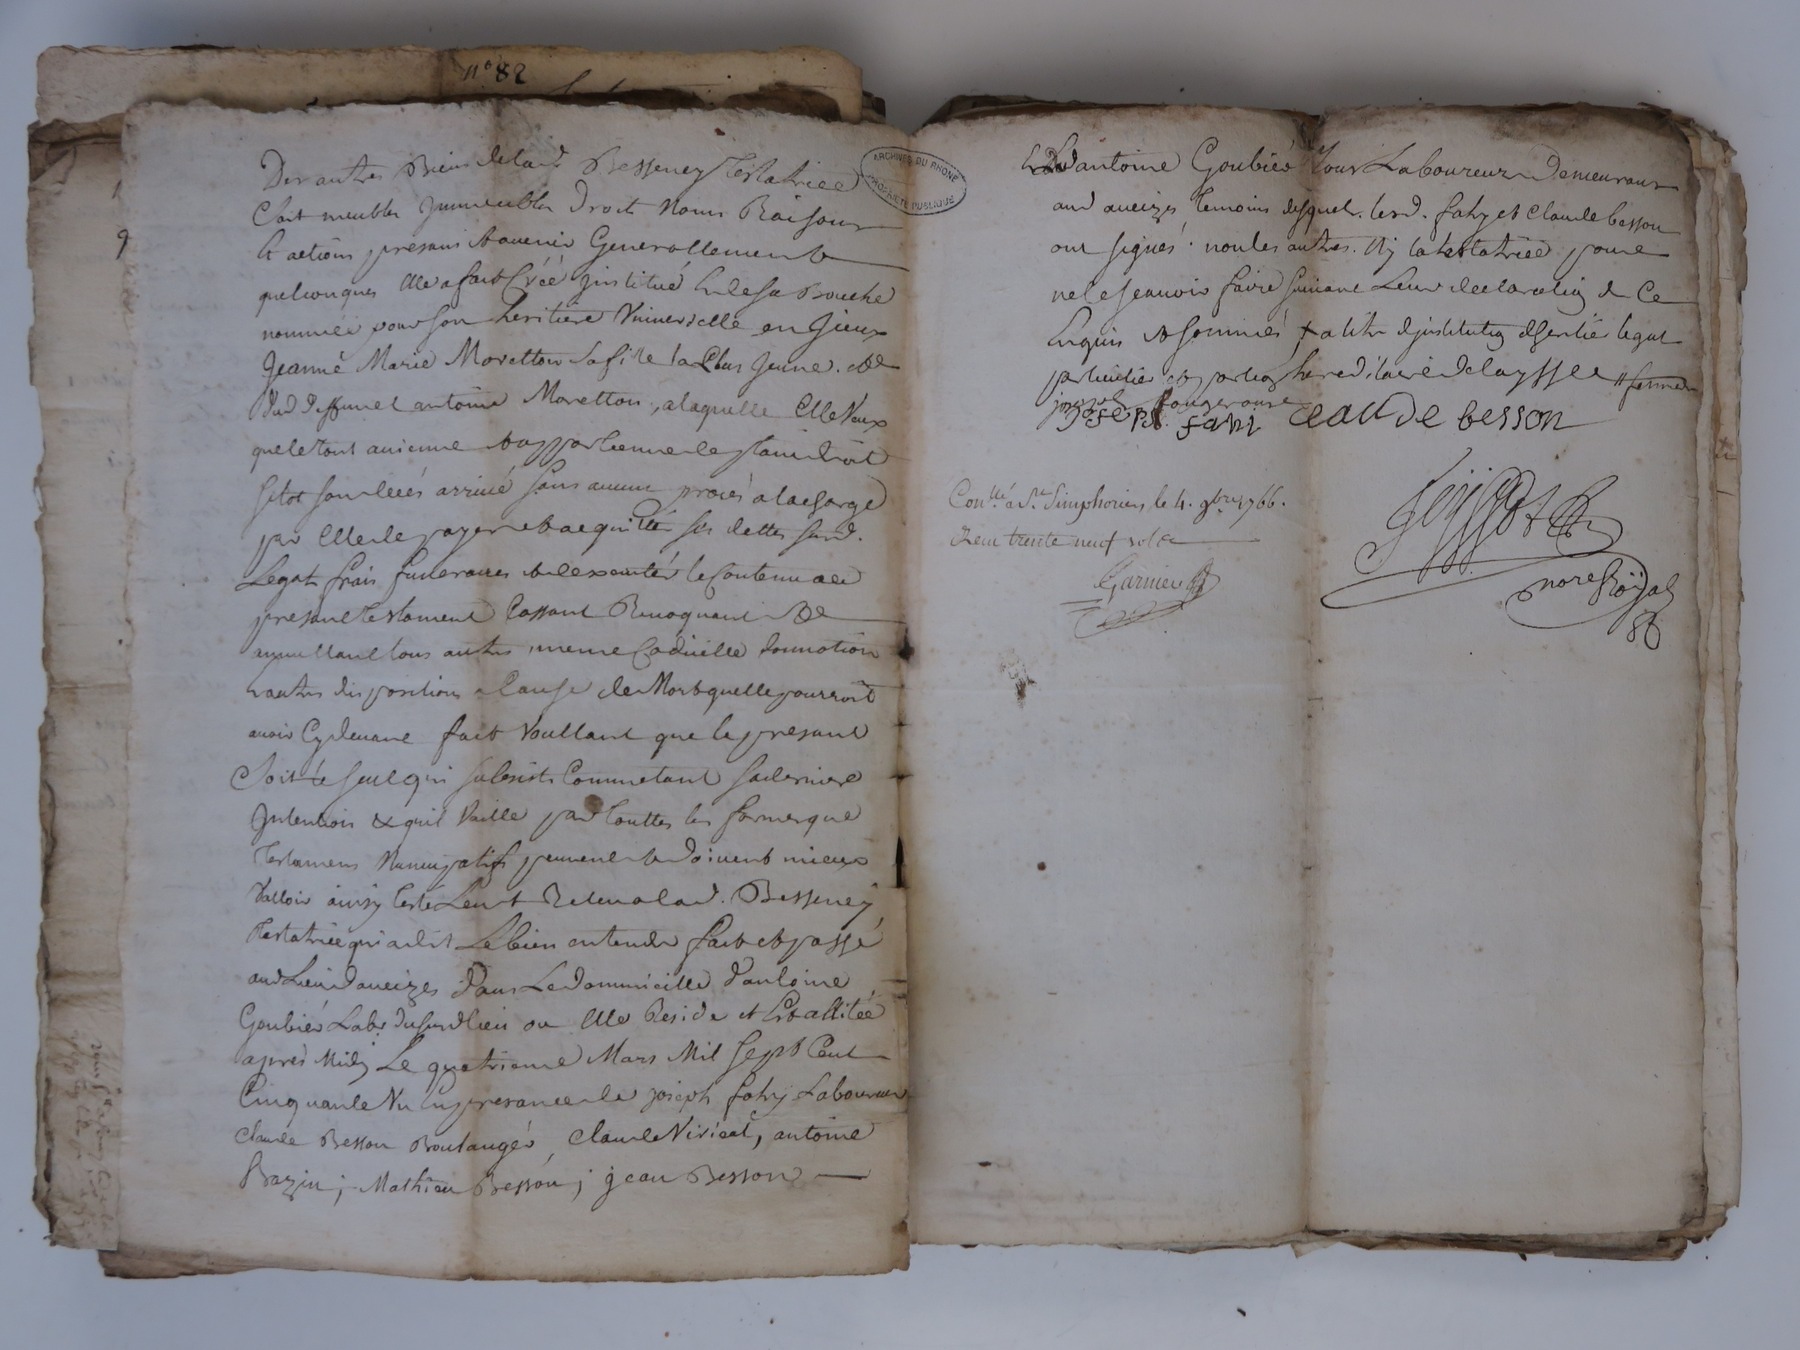 n° 82
ARCHIVES DU RHONE
PROPRIETE PUBLIQUE
Des autres Biens de lad. Besseney Testatrice
Soit meubles Jmmeubles Droits Noms Raisons
Et actions presans et avenir Generallement
quelconques Elle a fait Créé Jnstitué Et de sa Bouche
nommée pour son heritiere Vniverselle
Jeanne Marie Moretton sa fille la Plus Jeune et
dud deffunct antoine Moretton, a laquelle Elle Veux
que le tout avienne et appartienne de plain droit
sitot son decés arrivé sans aucun procés a la charge
par Elle de payer et acquitter ses dettes susd.
Legats frais funeraires et dexecuter le Contenu au
present testament Cassant Revoquant Et
annullant tous autres meme Codicille donnation
Et autres dispositions a Cause de Mort quelle pourroit
avoir Cy devant fait Voullant que le presant
Soit le seul qui subsiste Comme etant sa derniere
Jntention & quil Vaille par touttes les formes que
Testamens Nuncupatifs peuvent et doivent mieux
Valloir ainsy testé Leu et Releu a lad. Besseney
Testatrice qui a dit Le bien entendre fait et passé
aud Lieu daveizes dans Le dommicille d'antoine
Goubier Labr. dususd lieu ou Elle Reside et Est allitée
apres Midy Le quatrieme Mars Mil Sept Cent
Cinquante Vn En presance de joseph fahy Laboureur
Claude Besson Boulanger, Claude Viricel, antoine
Bazin; Mathieu Besson; jean Besson
Et Led antoine Goubier Tous Laboureurs Demeurans
aud aveizes temoins desquels lesd. fahy et Claude besson
ont signés non les autres Ny la testatrice pour
ne le scavoir faire suivant Leur declaration de Ce
Enquis & sommés a titre djnstitution
particulier et portion hereditaire delayssee
josepf fahi claude besson
Conllé a St. Simphorien le 4. 9bre 1766.
Receu trente neuf sols
Garnier
nore Royal